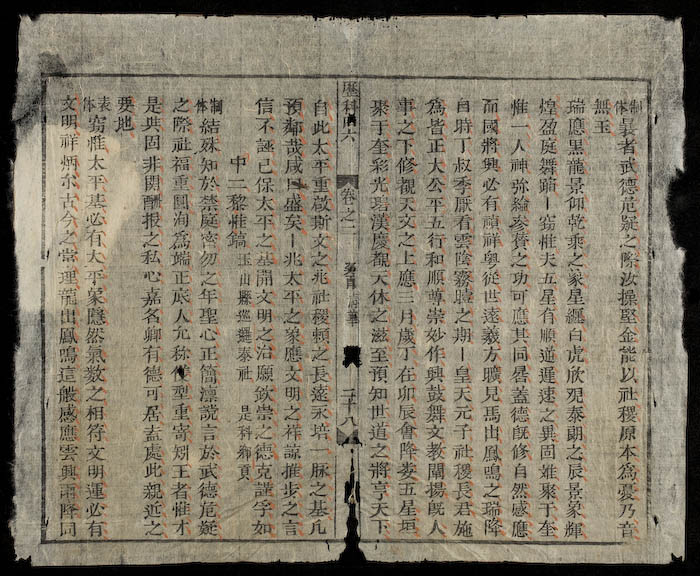 制体曩者武德危疑之際汝操堅金能以社稷原本為憂乃音
無玉
瑞應黑龍景仰乾乘之象星纏白虎欣覩泰朗之辰景象輝
煌盈庭舞蹈竊惟夫五星有順逆遲速之異固難聚于奎
惟一人神弥綸參贊之功可應其同晷蓋德既修自然感應
而國將興必有禎祥粵從世遠羲方曠見馬出鳳鳴之瑞降
自時丁叔季厭看雲陰霧曀之期皇天元子社稷長君施
為皆正大公平五行和順尊崇妙作興鼓舞文教闡揚既人
事之下修觀天文之上應三月歲丁在卯辰會降婁五星垣
聚于奎彩光碧漢慶觀天休之滋至預知世道之將亨天下
自此太平重啟斯文之兆社稷賴之長遠永培一脉之基凡
預鄰哉咸曰盛矣兆太平之象應文明之祥諒推步之言
信不誣已保太平之基開文明之治願欽崇之德克謹孚如
中二黎惟鎬 玉山縣巡邏泰社 是科鄉貢
制体結殊知於禁庭密勿之年聖心正簡凛讜言於武德危疑
之際社福重國海為端正辰人允称儀型重寄矧王者惟才
是與固非関酬报之私心嘉名卿有德可居盍處此親近之
要地
表体竊惟太平基必有太平象隱然氣数之相符文明運必有
文明祥炳尔古今之常理龍出鳳鳴這般感應雲興雨降同
歷科四六
卷之二
二十八